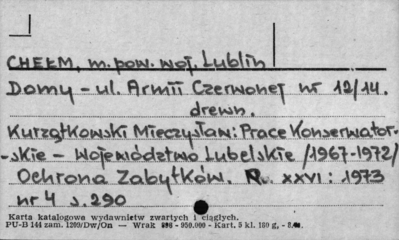 CHEŁM, m. pow. woj. Lublin
Domy – ul. Armii Czerwonej nr 12/14.
drewn.
Kurzątkowski Mieczysław: Prace Konserwator-
-skie – województwo Lubelskie /1967-1972/
Ochrona Zabytków. R. XXVI: 1973
nr 4 s. 290
Karta katalogowa wydawnictw zwartych i ciągłych.
PU-B 144 zam. 1209/Dw/On — Wrak - 950.000 - Kart. 5 kl. 180 g,